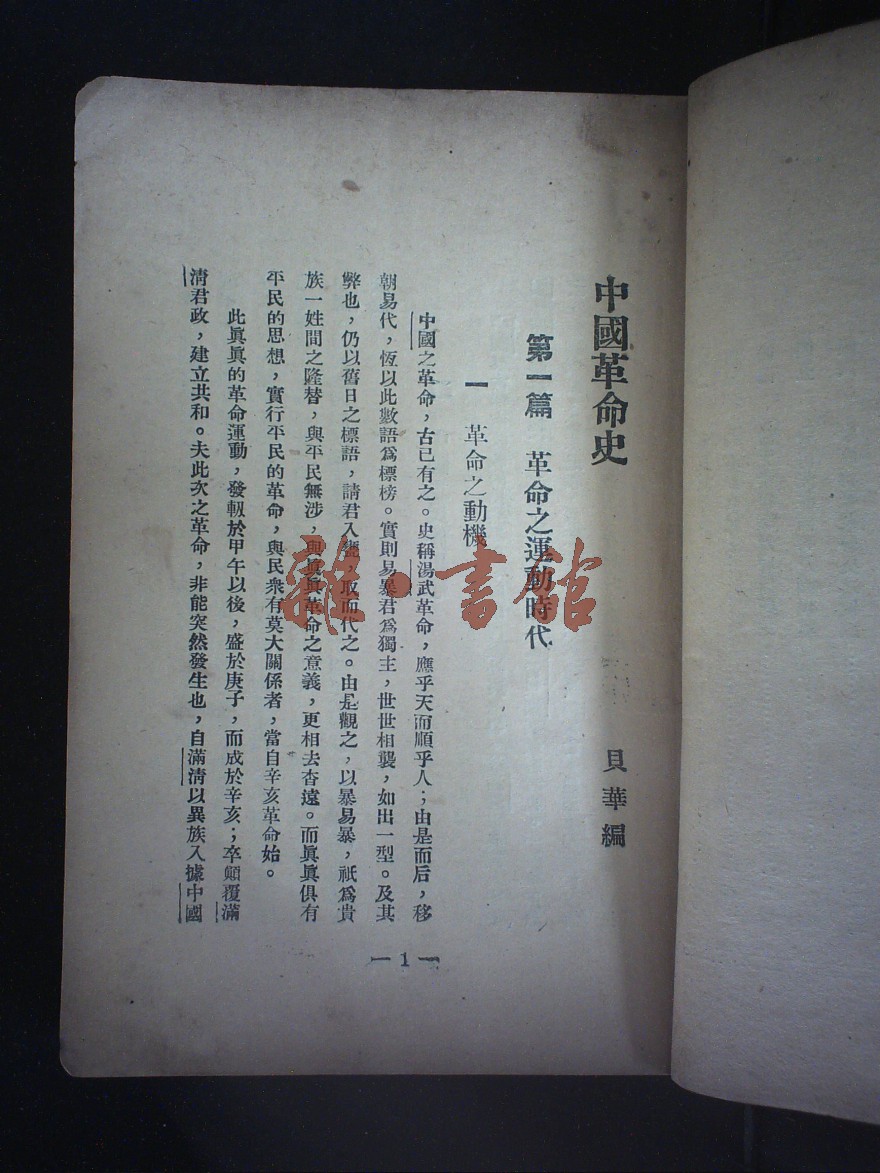 中國革命史
貝華編
第一篇 革命之運動時代
一 革命之動機
中國之革命，古已有之。史稱湯武革命，應乎天而順乎人；由是而后，移
朝易代，恆以此數語爲標榜。實則易暴君爲獨主，世世相襲，如出一型。及其
弊也，仍以舊日之標語，請君入甕，取而代之。由是觀之，以暴易暴，祇爲貴
族一姓間之隆替，與平民無涉，與眞眞革命之意義，更相去杳遠。而眞眞俱有
平民的思想，實行平民的革命，與民衆有莫大關係者，當自辛亥革命始。
此眞眞的革命運動，發軔於甲午以後，盛於庚子，而成於辛亥；卒顛覆滿
清君政，建立共和。夫此次之革命，非能突然發生也，自滿清以異族入據中國
— 1 —
雜·書館